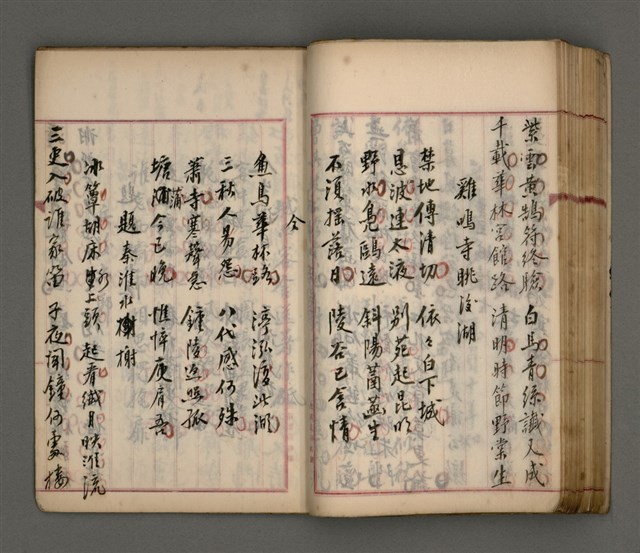 紫雲黄鵠符終驗 白馬青絲讖又成
千載華林宮館路 清明時節野棠生
雞鳴寺眺後湖
禁地傳清切 依々白下城
恩波連太液 別苑起昆明
野水鳧鷗遠 斜陽菌𦶜生
不須搖落日 陵谷已含情
仝
魚鳥華林路 渟泓後此湖
三秋人易怨 八代感何殊
蕭寺寒聲急 鍾陵返照孤
塘蒲今已晚 憔悴庾肩吾
題秦淮水榭
冰簟胡床水上頭 起看纖月映淮流
三更入破誰家笛 子夜聞鐘何處樓